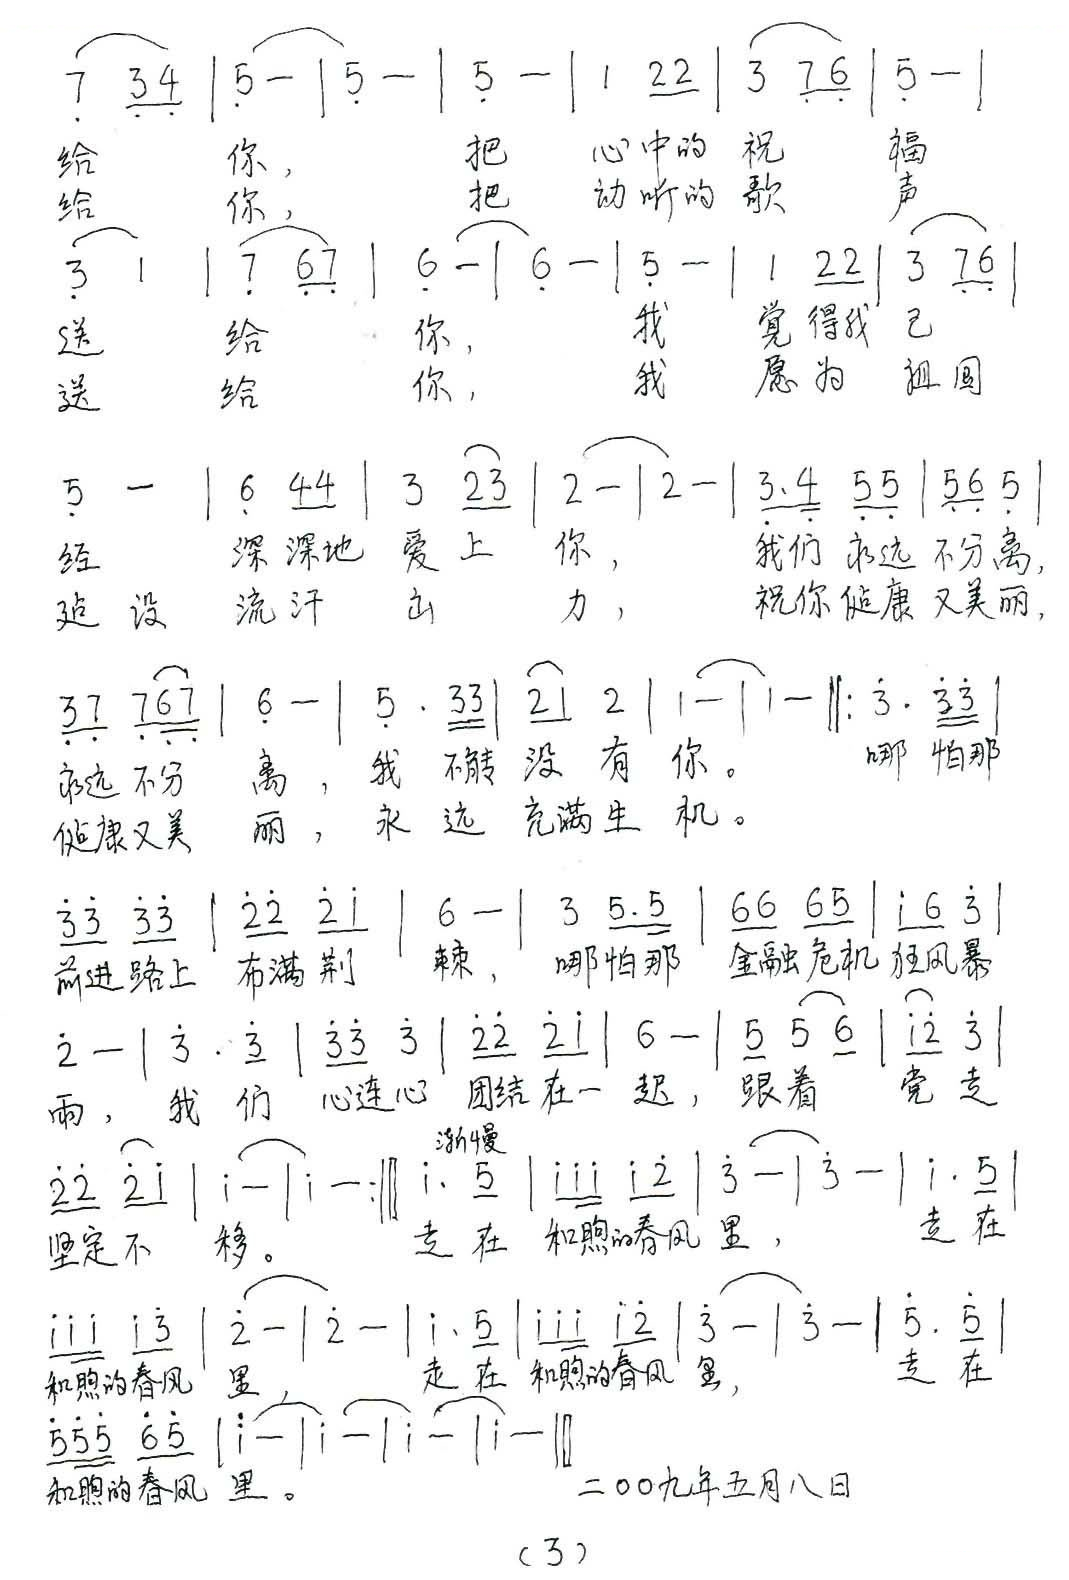 7 34 | 5 — | 5 — | 5 — | 1 22 | 3 76 | 5 — |
给 你， 把 心中的 祝 福
给 你， 把 动听的 歌 声
3 1 | 7 67 | 6 — | 6 — | 5 — | 1 22 | 3 76 |
送 给 你， 我 觉得我 已
送 给 你， 我 愿为 祖国
5 — | 6 44 | 3 23 | 2 — | 2 — | 3.4 55 | 56 5 |
经 深深地 爱上 你， 我们永远 不分离，
建设 流汗 出 力， 祝你健康 又美丽，
37 767 | 6 — | 5 . 33 | 21 2 | 1 — | 1 — ‖: 3 . 33 |
永远不分 离， 我 不能 没有 你。 哪怕那
健康又美 丽， 永远 充满生 机。
33 33 | 22 21 | 6 — | 3 5.5 | 66 65 | 16 3 |
前进路上 布满荆 棘， 哪怕那 金融危机 狂风暴
2 — | 3 . 3 | 33 3 | 22 21 | 6 — | 5 5 6 | 12 3 |
雨， 我们 心连心 团结在一 起， 跟着 党走
渐慢
22 21 | 1 — | 1 — :‖ 1 . 5 | 111 12 | 3 — | 3 — | 1 . 5 |
坚定不 移。 走在 和煦的春风 里， 走在
111 13 | 2 — | 2 — | 1 . 5 | 111 12 | 3 — | 3 — | 5 . 5 |
和煦的春风 里， 走在 和煦的春风 里， 走在
555 65 | 1 — | 1 — | 1 — | 1 — ‖
和煦的春风 里。 二〇〇九年五月八日
（3）